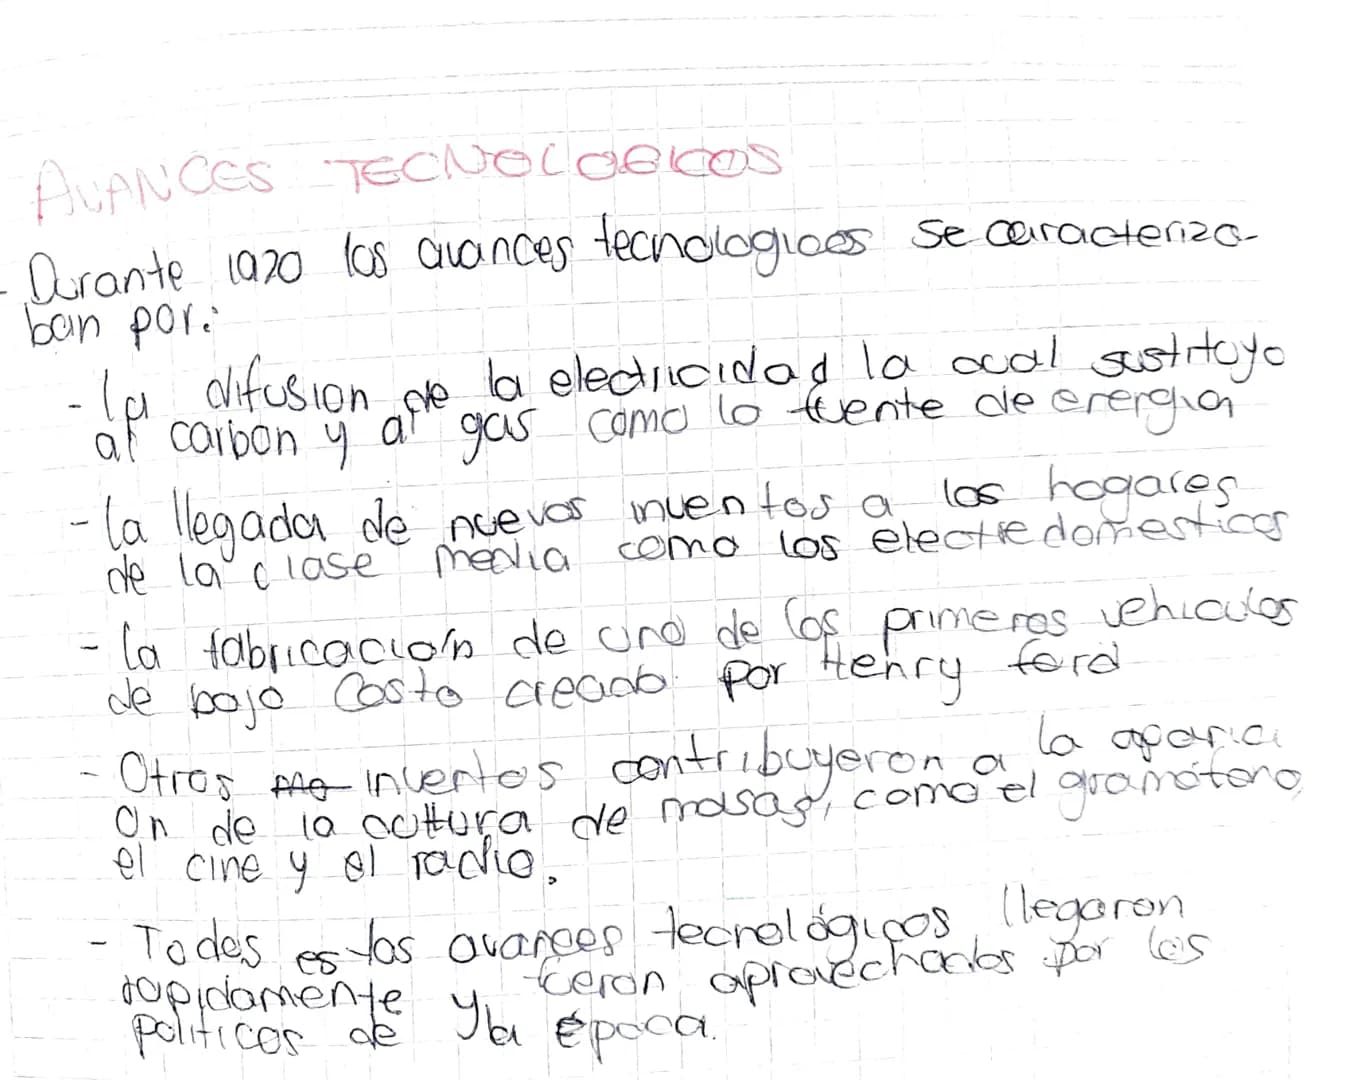 AVANCES TECNOLOGICOS
- Durante 1920 los avances tecnologicos se caracteriza-
ban por:
- la difusion de la electricidad la cual sustituyo
al carbon y al gas como la fuente de energia
- la llegada de nuevos inventos a los hogares
de la clase media como los electrodomesticos
- la fabricación de uno de los primeros vehiculos
de bajo costo creado por Henry ford
- Otros inventos contribuyeron a la aparici
on de la cultura de masas, como el gramófono,
el cine y el radio.
- Todos estos avances tecnológicos llegaron
rapidamente y fueron aprovechados por los
politicos de la época.